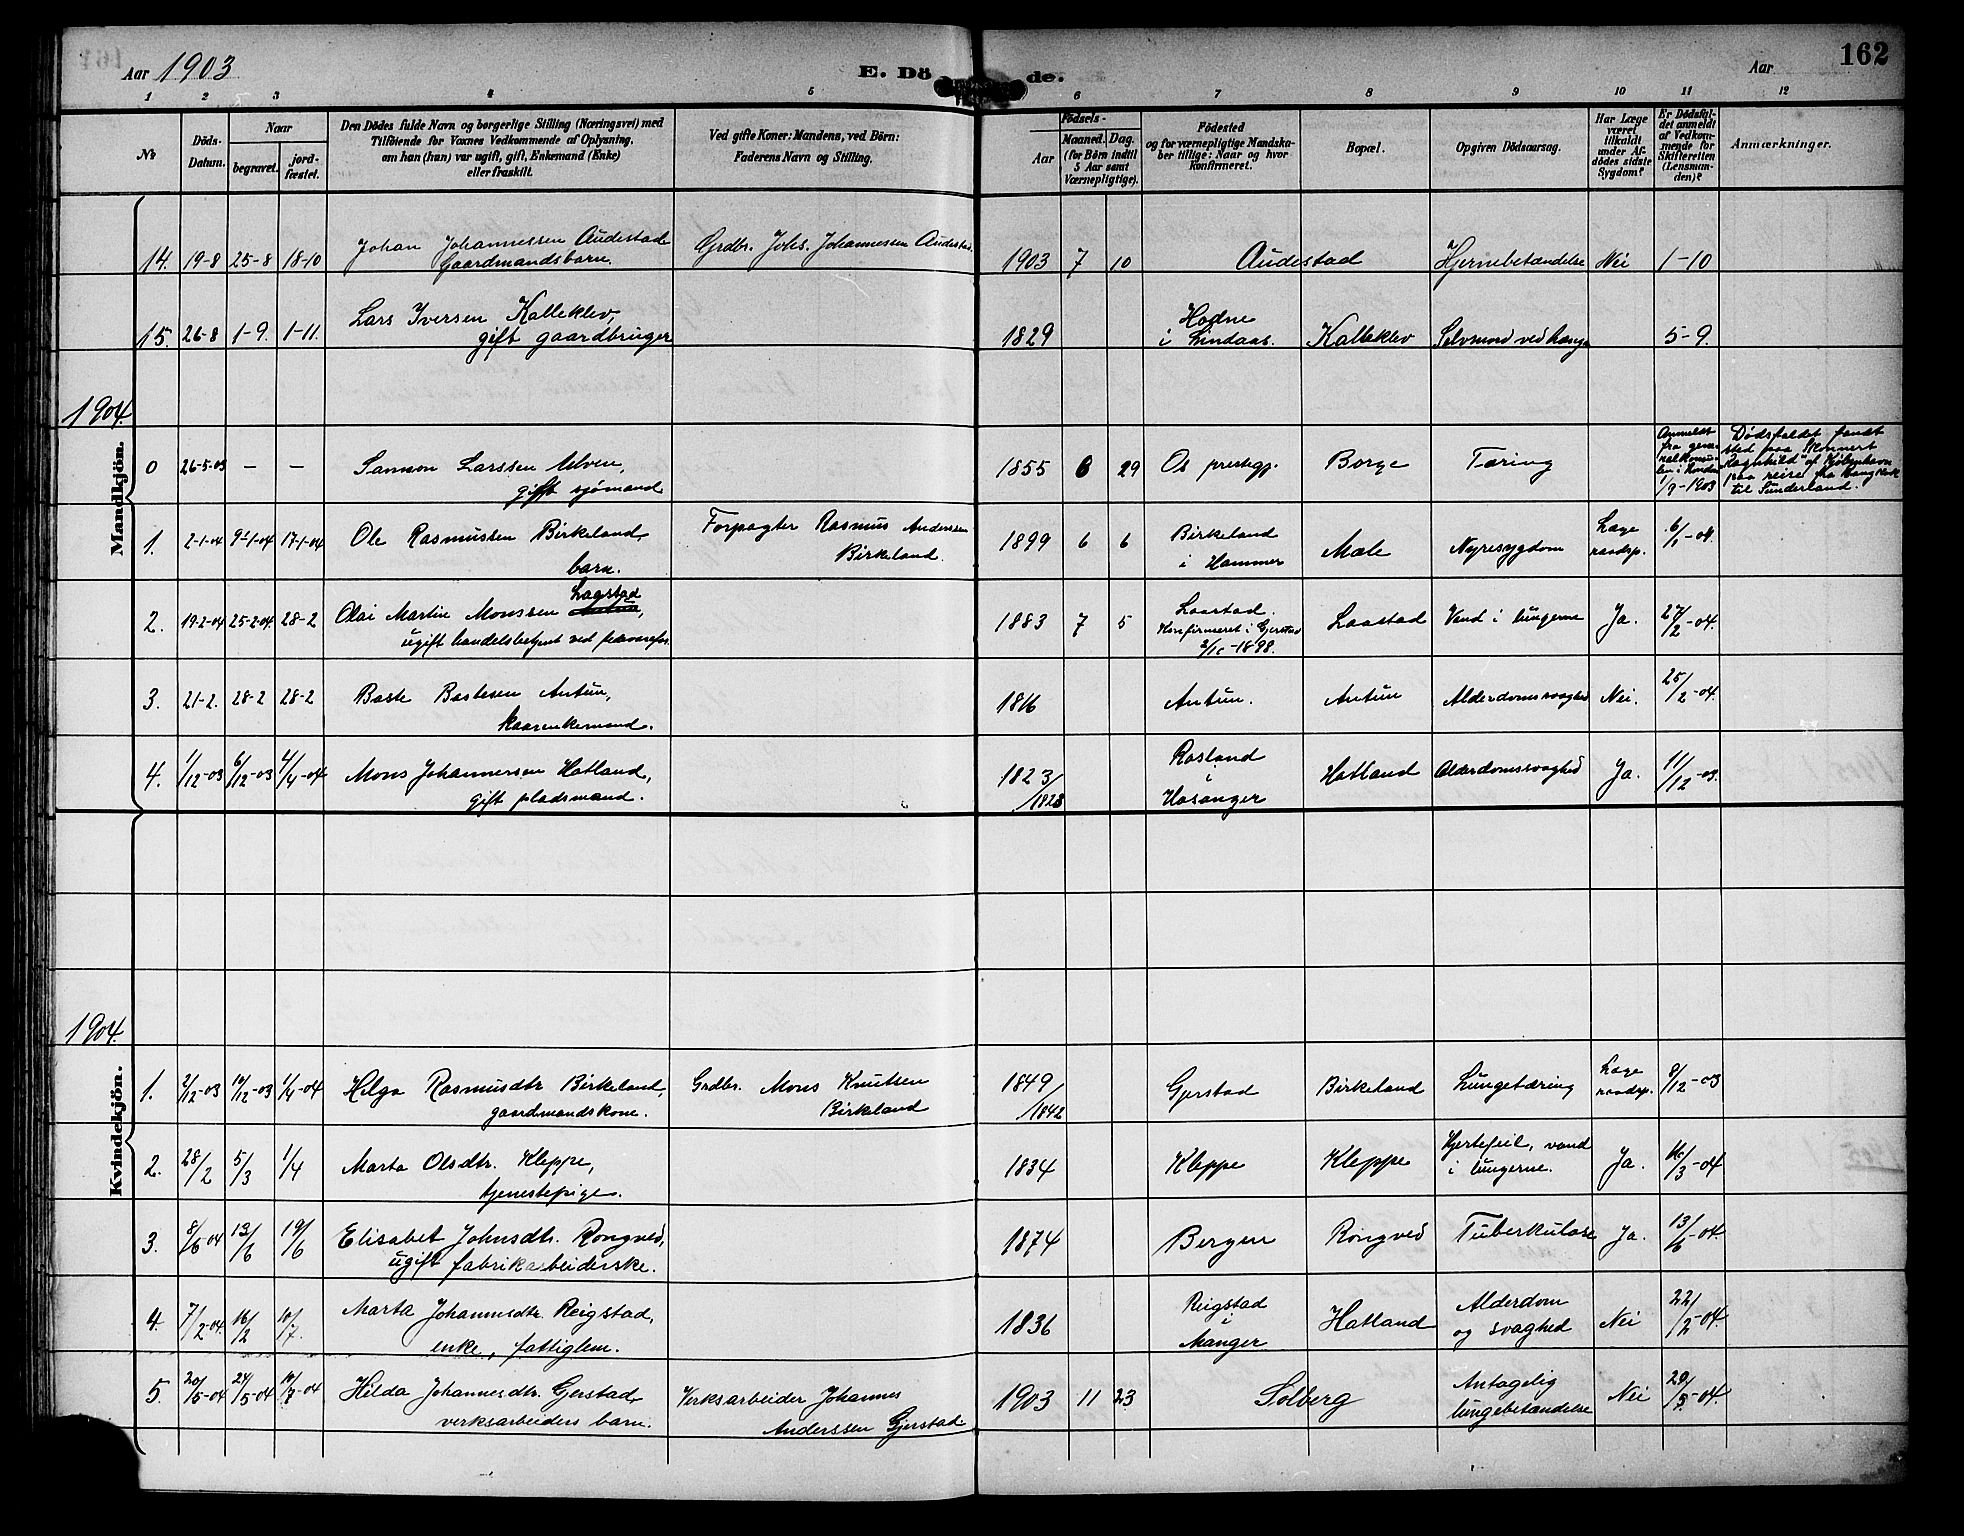 Aar 1903
E. Dö de.
Aar
162
1 2 3 4 5 6 7 8 9 10 11 12
No
Döds-
Datum.
Naar
begravet.
jord-
fæstet.
Den Dödes fulde Navn og borgerlige Stilling (Næringsvei) med
Tilföiende for Voxnes Vedkommende af Oplysning,
om han (hun) var ugift, gift, Enkemand (Enke)
eller fraskilt.
Ved gifte Koner: Mandens, ved Börn:
Faderens Navn og Stilling.
Födsels-
Aar
Maaned. Dag.
(for Börn indtil
5 Aar samt
Værnepligtige).
Födested
og for værnepligtige Mandska-
ber tillige: Naar og hvor
konfirmeret.
Bopæl.
Opgiven Dödsaarsag.
Har Læge
været
tilkaldt
under Af-
dödes sidste
Sygdom?
Er Dödsfal-
det anmeldt
af Vedkom-
mende for
Skifteretten
(Lensman-
den)?
Anmærkninger.
14. 19-8 25-8 18-10 Johan Johannessen Audestad Grdbr. Johs. Johannessen Audestad. 1903 7 10 Audestad Hjernebetændelse Nei 1-10
Gaardmandsbarn.
15. 26-8 1-9. 1-11. Lars Iversen Kalleklev, 1829 Hodne Kalleklev Selvmord ved 5-9.
gift gaardbruger i Lindaas.
1904.
Mandkjön.
0 26-5-03 — — Samson Larssen Ulven, 1855 6 29 Os prestegj. Borge Tæring
gift sjömand
Anmeldt
fra gene-
ralkonsu-
len i London
1/9-1903
Dödsfaldet fandt
sted paa
Ragnhild" af Kjöbenhavn
paa reise fra
til Sunderland.
1. 2-1-04 9-1-04 17-1-04 Ole Rasmussen Birkeland, Forpagter Rasmus Anderssen 1899 6 6 Birkeland Mæle Nyresygdom Læge 6/1-04.
barn. Birkeland. i Hammer raadsp.
Lagstad
2. 19-2-04 25-2-04. 28-2 Olai Martin Monssen 1883 7 5 Laastad. Laastad Vand i lungerne Ja. 27/2-04.
ugift handelsbetjent ved Konfirmeret i Gjerstad
-1898.
3. 21-2. 28-2 28-2 Baste Bastesen Antun, 1816 Antun. Antun Alderdomssvaghed Nei. 25/2-04.
kaarenkemand.
4. 1/12-03 6/12-03 4/4-04 Mons Johannessen Hatland, 1823 Rosland Hatland Alderdomssvaghed Ja. 11/12-03.
gift pladsmand. /1828 i
Hosanger
1904.
Kvindekjön.
1. 2/12-03 10/12-03 1/4-04 Helga Rasmusdtr Birkeland, Grdbr. Mons Knutsen 1849 Gjerstad Birkeland Lungetæring Læge 9/12-03
gaardmandskone. Birkeland /1842 raadsp.
2. 28/2 5/3 1/4 Marta Olsdtr. Kleppe, 1834 Kleppe Kleppe Hjertefeil, vand Ja. 16/3-04
tjenestepige. i lungerne.
3. 8/6-04 13/6 19/6 Elisabet Johnsdtr. Rongved, 1874 Bergen Rongved Tuberkulose Ja. 13/6-04.
ugift fabrikarbeiderske.
4. 7/2-04. 16/2 10/7. Marta Johannesdtr. Reigstad, 1836 Reigstad Hatland Alderdom Nei 22/2-04.
enke, fattiglem. i og svaghed
Manger
5. 20/5-04 24/5-04 10/7-04 Hilda Johannesdtr. Gjerstad, Verksarbeider Johannes 1903 11 23 Solberg Antagelig Nei 29/5-04.
verksarbeiders barn. Anderssen Gjerstad lungebetændelse